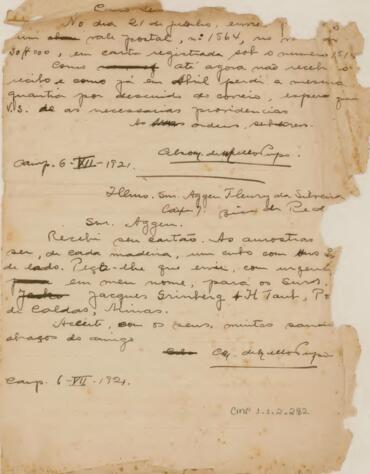 No dia 21 de junho, envie
um vale postal, nº 1564, no
30$000, em carta registrada sob o numero 151
Como até agora não recebi o
recibo e como já em Abril perdi a mesma
quantia por descuido do correio, espero que
V.S. dê as necessarias providencias
As ordens,
Camp. 6-VII-1921.
Illmo. Snr. Aggeu Fleury da Silveira
Snr. Aggeu.
Recebi seu cartão. As amostras
ser, de cada madeira, um cubo com
de lado. Peço-lhe que envie, com urgen
em meu nome, para os Snrs.
Jacques Grinberg & H Taub, Po
de Caldas, Minas.
Acceite, com os seus, muitas saud
abraços do amigo
Camp. 6-VII-1921.
CMP 1.1.2.282